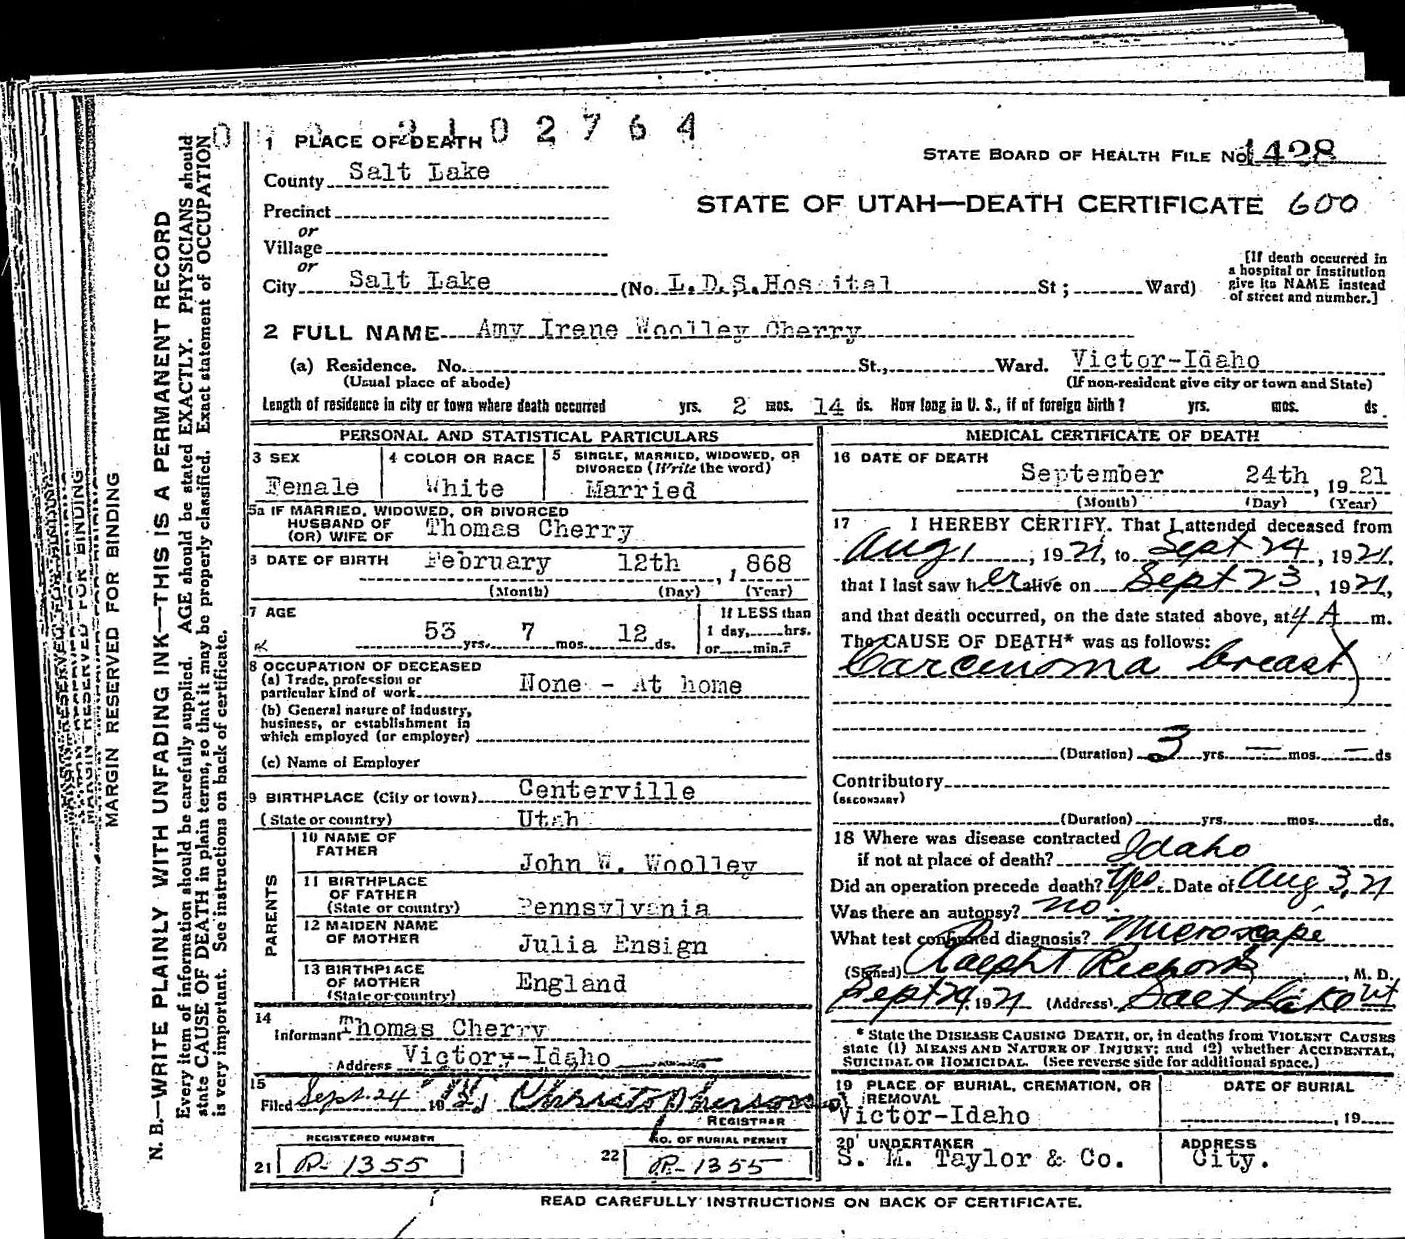 2102764
1 PLACE OF DEATH
STATE BOARD OF HEALTH FILE No. 1428
County Salt Lake
STATE OF UTAH—DEATH CERTIFICATE 600
Precinct
or
Village
or
City Salt Lake (No. L.D.S.Hospital St ; Ward)
[If death occurred in
a hospital or institution
give its NAME instead
of street and number.]
2 FULL NAME Amy Irene Woolley Cherry
(a) Residence. No. St., Ward. Victor-Idaho
(Usual place of abode) (If non-resident give city or town and State)
Length of residence in city or town where death occurred yrs. 2 mos. 14 ds. How long in U. S., if of foreign birth? yrs. mos. ds.
PERSONAL AND STATISTICAL PARTICULARS
3 SEX
Female
4 COLOR OR RACE
White
5 SINGLE, MARRIED, WIDOWED, OR
DIVORCED (Write the word)
Married
5a IF MARRIED, WIDOWED, OR DIVORCED
HUSBAND OF
(OR) WIFE OF Thomas Cherry
6 DATE OF BIRTH February 12th , 1868
(Month) (Day) (Year)
7 AGE
53 yrs. 7 mos. 12 ds.
If LESS than
1 day,....hrs.
or....min.?
8 OCCUPATION OF DECEASED
(a) Trade, profession or
particular kind of work None - At home
(b) General nature of industry,
business, or establishment in
which employed (or employer)
(c) Name of Employer
9 BIRTHPLACE (City or town) Centerville
(State or country) Utah
PARENTS
10 NAME OF
FATHER John W. Woolley
11 BIRTHPLACE
OF FATHER
(State or country) Pennsylvania
12 MAIDEN NAME
OF MOTHER Julia Ensign
13 BIRTHPLACE
OF MOTHER
(State or country) England
14
Informant Thomas Cherry
Address Victory-Idaho
15
Filed Sept 24 1921 Christopherson
REGISTRAR
REGISTERED NUMBER
21 P-1355
NO. OF BURIAL PERMIT
22 P-1355
MEDICAL CERTIFICATE OF DEATH
16 DATE OF DEATH
September 24th , 19 21
(Month) (Day) (Year)
17 I HEREBY CERTIFY. That I attended deceased from
Aug 1 , 1921, to Sept 24 , 1921,
that I last saw her alive on Sept 23 , 1921,
and that death occurred, on the date stated above, at 4 A m.
The CAUSE OF DEATH* was as follows:
Carcinoma breast
(Duration) 3 yrs. — mos. — ds
Contributory
(SECONDARY)
(Duration) yrs. mos. ds.
18 Where was disease contracted
if not at place of death? Idaho
Did an operation precede death? Yes. Date of Aug 3, 21
Was there an autopsy? no.
What test confirmed diagnosis? Microscope
(Signed) Ralph T Richards , M. D.
Sept 24, 1921 (Address) Salt Lake Ut
* State the DISEASE CAUSING DEATH, or, in deaths from VIOLENT CAUSES
state (1) MEANS AND NATURE OF INJURY; and (2) whether ACCIDENTAL,
SUICIDAL OR HOMICIDAL. (See reverse side for additional space.)
19 PLACE OF BURIAL, CREMATION, OR
REMOVAL
Victor-Idaho
DATE OF BURIAL
, 19
20 UNDERTAKER
S. M. Taylor & Co.
ADDRESS
City.
READ CAREFULLY INSTRUCTIONS ON BACK OF CERTIFICATE.
MARGIN RESERVED FOR BINDING
N. B.—WRITE PLAINLY WITH UNFADING INK—THIS IS A PERMANENT RECORD
Every item of information should be carefully supplied. AGE should be stated EXACTLY. PHYSICIANS should
state CAUSE OF DEATH in plain terms, so that it may be properly classified. Exact statement of OCCUPATION
is very important. See instructions on back of certificate.